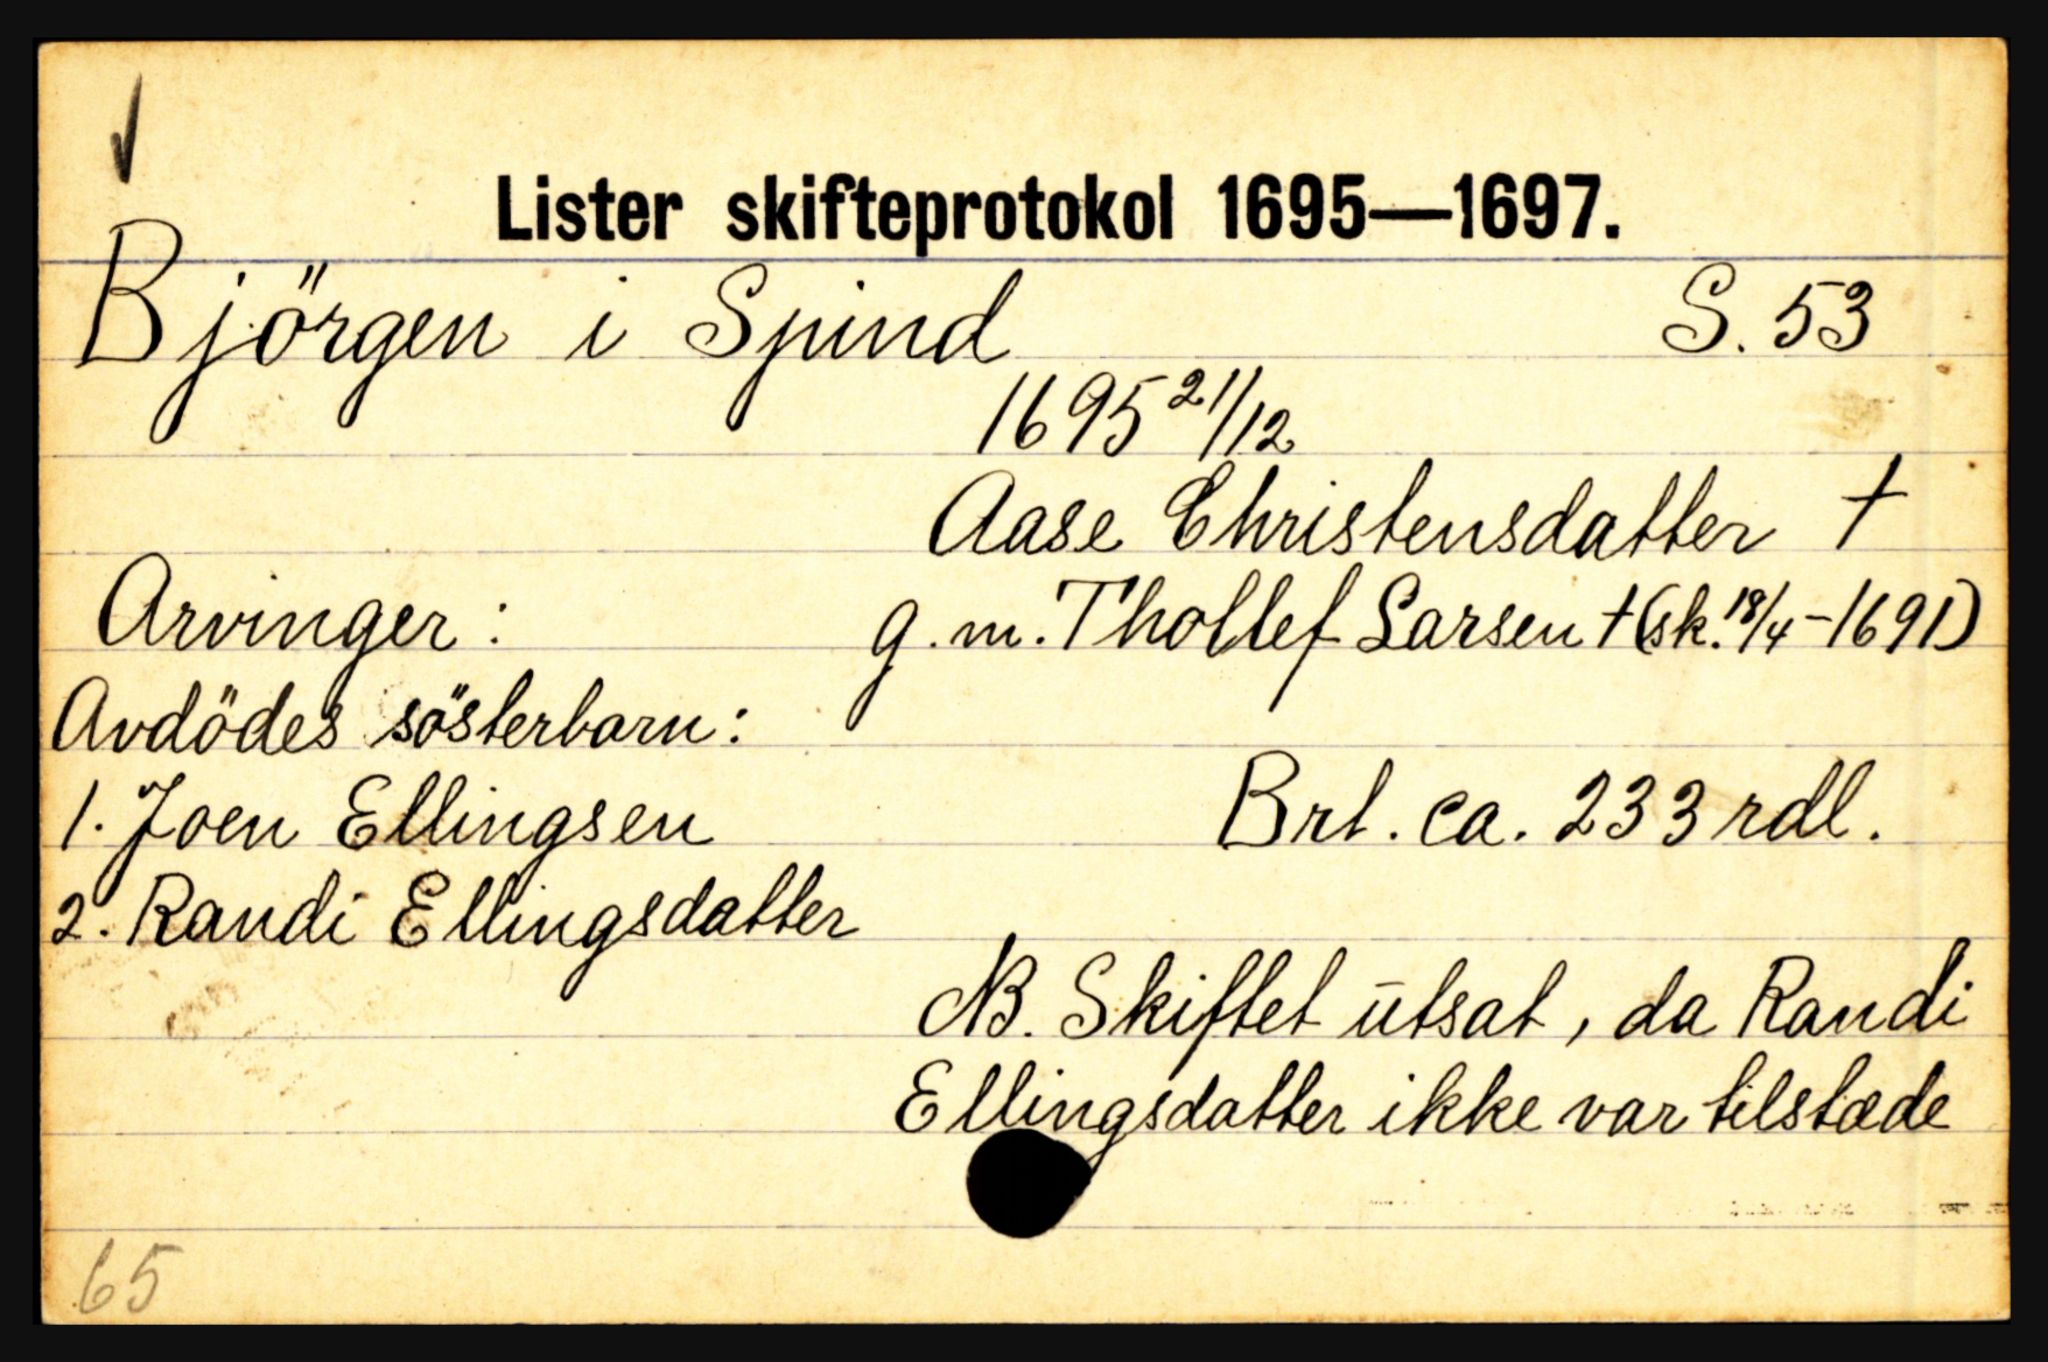 Lister skifteprotokol 1695—1697.
Björgen i Spind S. 53
1695 21/12
Aase Christensdatter †
Arvinger: g.m. Thollef Larsen † (sk. 18/4-1691)
Avdödes sösterbarn:
1. Joen Ellingsen Brt. ca. 233 rdl.
2. Randi Ellingsdatter
NB. Skiftet ūtsat, da Randi
Ellingsdatter ikke var tilstæde
65